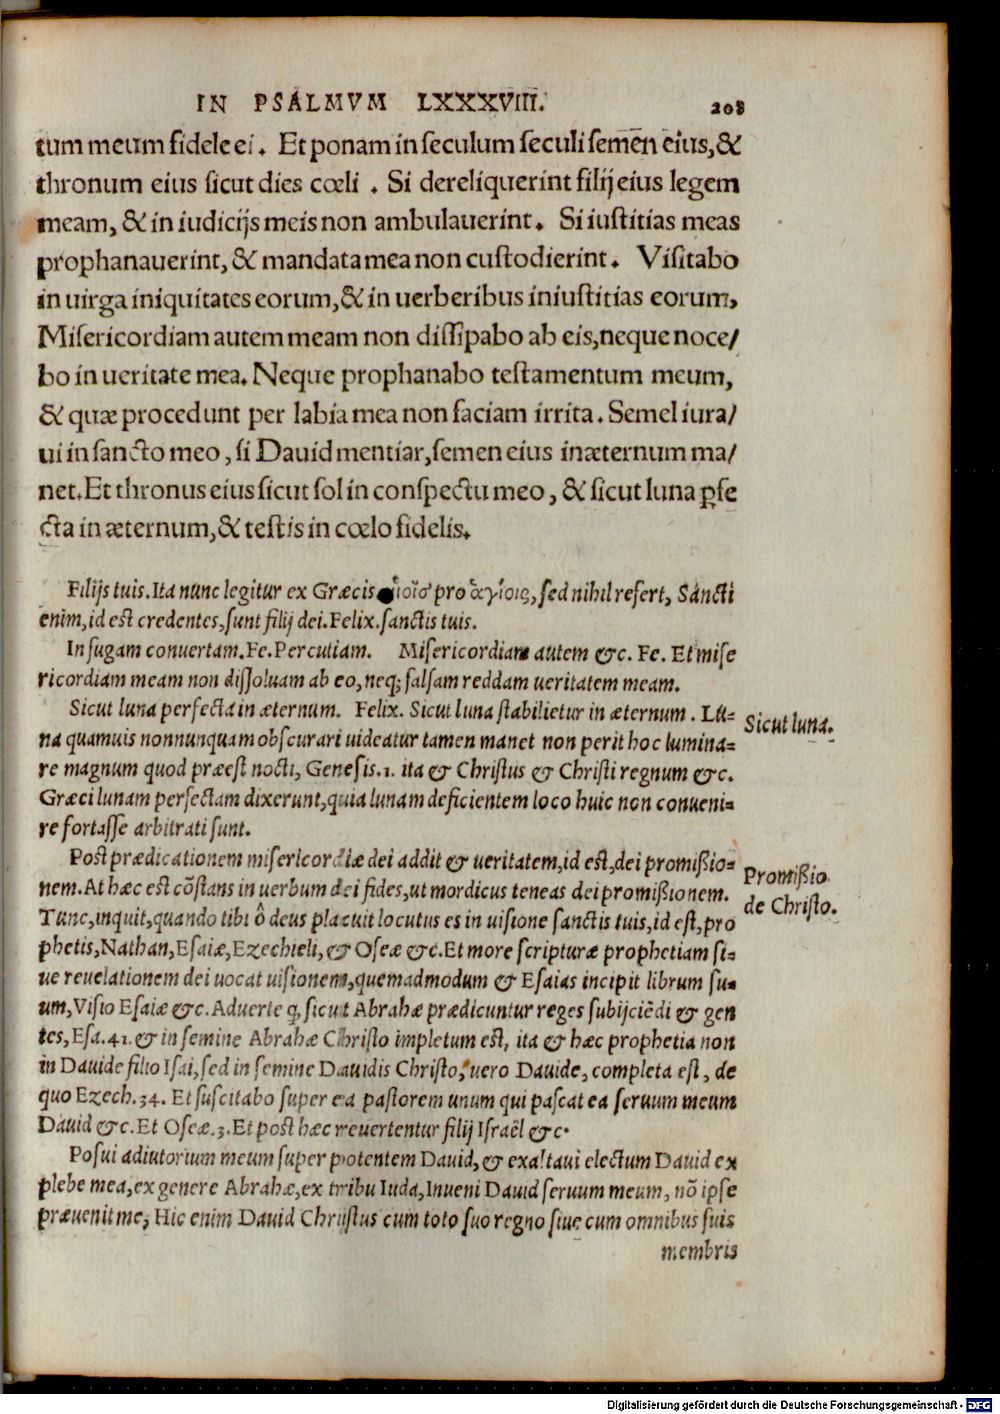 IN PSALMVM LXXXVIII. 208
tum meum fidele ei. Et ponam in seculum seculi semen eius, &
thronum eius sicut dies cœli. Si dereliquerint filij eius legem
meam, & in iudicijs meis non ambulauerint. Si iustitias meas
prophanauerint, & mandata mea non custodierint. Visitabo
in uirga iniquitates eorum, & in uerberibus iniustitias eorum,
Misericordiam autem meam non dissipabo ab eis, neque noce/
bo in ueritate mea. Neque prophanabo testamentum meum,
& quæ procedunt per labia mea non faciam irrita. Semel iura/
ui in sancto meo, si Dauid mentiar, semen eius in æternum ma/
net. Et thronus eius sicut sol in conspectu meo, & sicut luna ꝑfe
cta in æternum, & testis in cœlo fidelis.
Filijs tuis. Ita nunc legitur ex Græcis pro ἁγίοις, sed nihil refert, Sancti
enim, id est credentes, sunt filij dei. Felix. sanctis tuis.
In fugam conuertam. Fe. Percutiam. Misericordiam autem &c. Fe. Et mise
ricordiam meam non dissoluam ab eo, neq; falsam reddam ueritatem meam.
Sicut luna perfecta in æternum. Felix. Sicut luna stabilietur in æternum. Lu=
na quamuis nonnunquam obscurari uideatur tamen manet non perit hoc lumina=
re magnum quod præest nocti, Genesis. 1. ita & Christus & Christi regnum &c.
Græci lunam perfectam dixerunt, quia lunam deficientem loco huic non conueni=
re fortasse arbitrati sunt.
Sicut luna.
Post prædicationem misericordiæ dei addit & ueritatem, id est, dei promißio=
nem. At hæc est cōstans in uerbum dei fides, ut mordicus teneas dei promißionem.
Tunc, inquit, quando tibi ô deus placuit locutus es in uisione sanctis tuis, id est, pro
phetis, Nathan, Esaiæ, Ezechieli, & Oseæ &c. Et more scripturæ prophetiam si=
ue reuelationem dei uocat uisionem, quemadmodum & Esaias incipit librum su=
um, Visio Esaiæ &c. Aduerte q, sicut Abrahæ prædicuntur reges subijciēdi & gen
tes, Esa. 41. & in semine Abrahæ Christo impletum est, ita & hæc prophetia non
in Dauide filio Isai, sed in semine Dauidis Christo, uero Dauide, completa est, de
quo Ezech. 34. Et suscitabo super ea pastorem unum qui pascat ea seruum meum
Dauid &c. Et Oseæ. 3. Et post hæc reuertentur filij Israël &c.
Promißio
de Christo.
Posui adiutorium meum super potentem Dauid, & exaltaui electum Dauid ex
plebe mea, ex genere Abrahæ, ex tribu Iuda, Inueni Dauid seruum meum, nō ipse
præuenit me, Hic enim Dauid Christus cum toto suo regno siue cum omnibus suis
membris
Digitalisierung gefördert durch die Deutsche Forschungsgemeinschaft - DFG